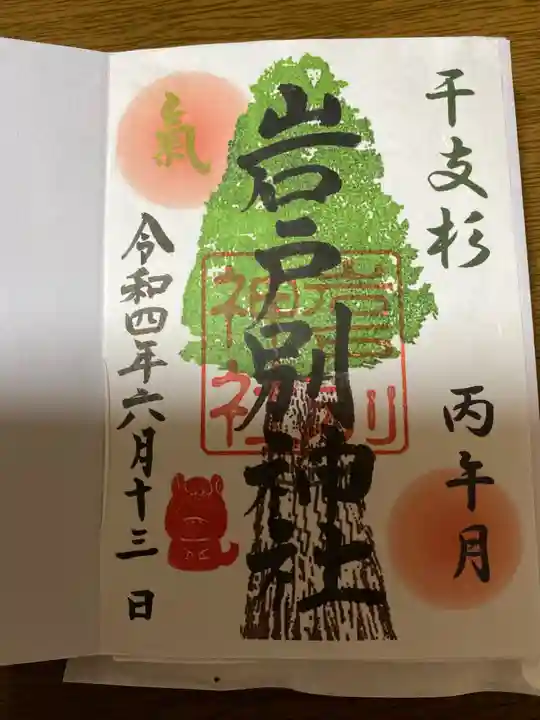 干支杉
丙午月
岩戸別神社
岩戸別
神社
氣
令和四年六月十三日